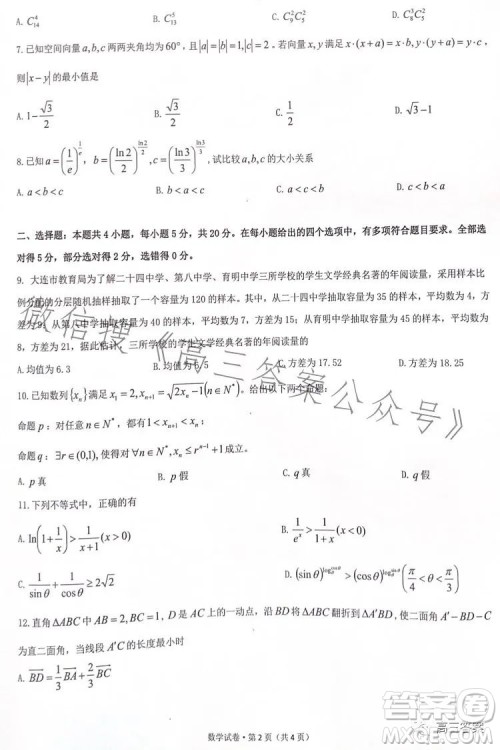 A. $C_{14}^{4}$ B. $C_{13}^{5}$ C. $C_{9}^{2}C_{5}^{2}$ D. $C_{9}^{3}C_{5}^{2}$
7.已知空间向量 $a,b,c$ 两两夹角均为 60°,且 $|a|=|b|=1,|c|=2$。若向量 $x,y$ 满足 $x\cdot(x+a)=x\cdot b,y\cdot(y+a)=y\cdot c$,
则 $|x-y|$ 的最小值是
A. $1-\frac{\sqrt{3}}{2}$ B. $\frac{\sqrt{3}}{2}$ C. $\frac{1}{2}$ D. $\sqrt{3}-1$
8.已知 $a=\left(\frac{1}{e}\right)^{\frac{1}{e}}$, $b=\left(\frac{\ln 2}{2}\right)^{\frac{\ln 2}{2}}$, $c=\left(\frac{\ln 3}{3}\right)^{\frac{\ln 3}{3}}$,试比较 $a,b,c$ 的大小关系
A. $a<b<c$ B. $a<c<b$ C. $b<a<c$ D. $b<c<a$
二、选择题:本题共 4 小题,每小题 5 分,共 20 分。在每小题给出的四个选项中,有多项符合题目要求。全部选
对得 5 分,部分选对得 2 分,选错得 0 分。
9. 大连市教育局为了解二十四中学、第八中学、育明中学三所学校的学生文学经典名著的年阅读量,采用样本比
例分配的分层随机抽样抽取了一个容量为 120 的样本。其中,从二十四中学抽取容量为 35 的样本,平均数为 4,方
差为 9;从第八中学抽取容量为 40 的样本,平均数为 7,方差为 15;从育明中学抽取容量为 45 的样本,平均数为
8,方差为 20,据此估计,三所学校的学生文学经典名著的年阅读量的
A.均值为 6.3 B. 均值为 6.5 C. 方差为 17.52 D. 方差为 18.25
10. 已知数列 $\{x_n\}$ 满足 $x_1=2,x_{n+1}=\sqrt{2x_n-1}(n\in N^*)$。给出以下两个命题:
命题 $p$:对任意 $n\in N^*$,都有 $1<x_{n+1}<x_n$;
命题 $q$:$\exists r\in(0,1)$,使得对 $\forall n\in N^*$,都有 $x_n\leq r^{n-1}+1$
A. $p$ 真 B. $p$ 假 C. $q$ 真 D. $q$ 假
11.下列不等式中,正确的有
A. $\ln\left(1+\frac{1}{x}\right)>\frac{1}{x+1}(x>0)$ B. $\frac{1}{e^x}>\frac{1}{x+1}(x>0)$
C. $\frac{1}{\sin\theta}+\frac{1}{\cos\theta}\geq 2\sqrt{2}$ D. $(\sin\theta)^{\log_{\pi}^{\sin\theta}}>(\cos\theta)^{\log_{\pi}^{\cos\theta}}\left(\frac{\pi}{4}<\theta<\frac{\pi}{3}\right)$
12.直角 $\Delta ABC$ 中 $AB=2,BC=1$,$D$ 是斜边 $AC$ 上的一动点,沿 $BD$ 将 $\Delta ABC$ 翻折到 $\Delta A'BC$,使二面角 $A'-BD-C$
为直二面角,当线段 $A'C$ 的长度最小时
A. $\overrightarrow{BD}=\frac{1}{3}\overrightarrow{BA}+\frac{2}{3}\overrightarrow{BC}$
数学试卷·第 2 页(共 4 页)
微信搜《高三答案公众号》
高三答案
答案圈
MXQE.COM